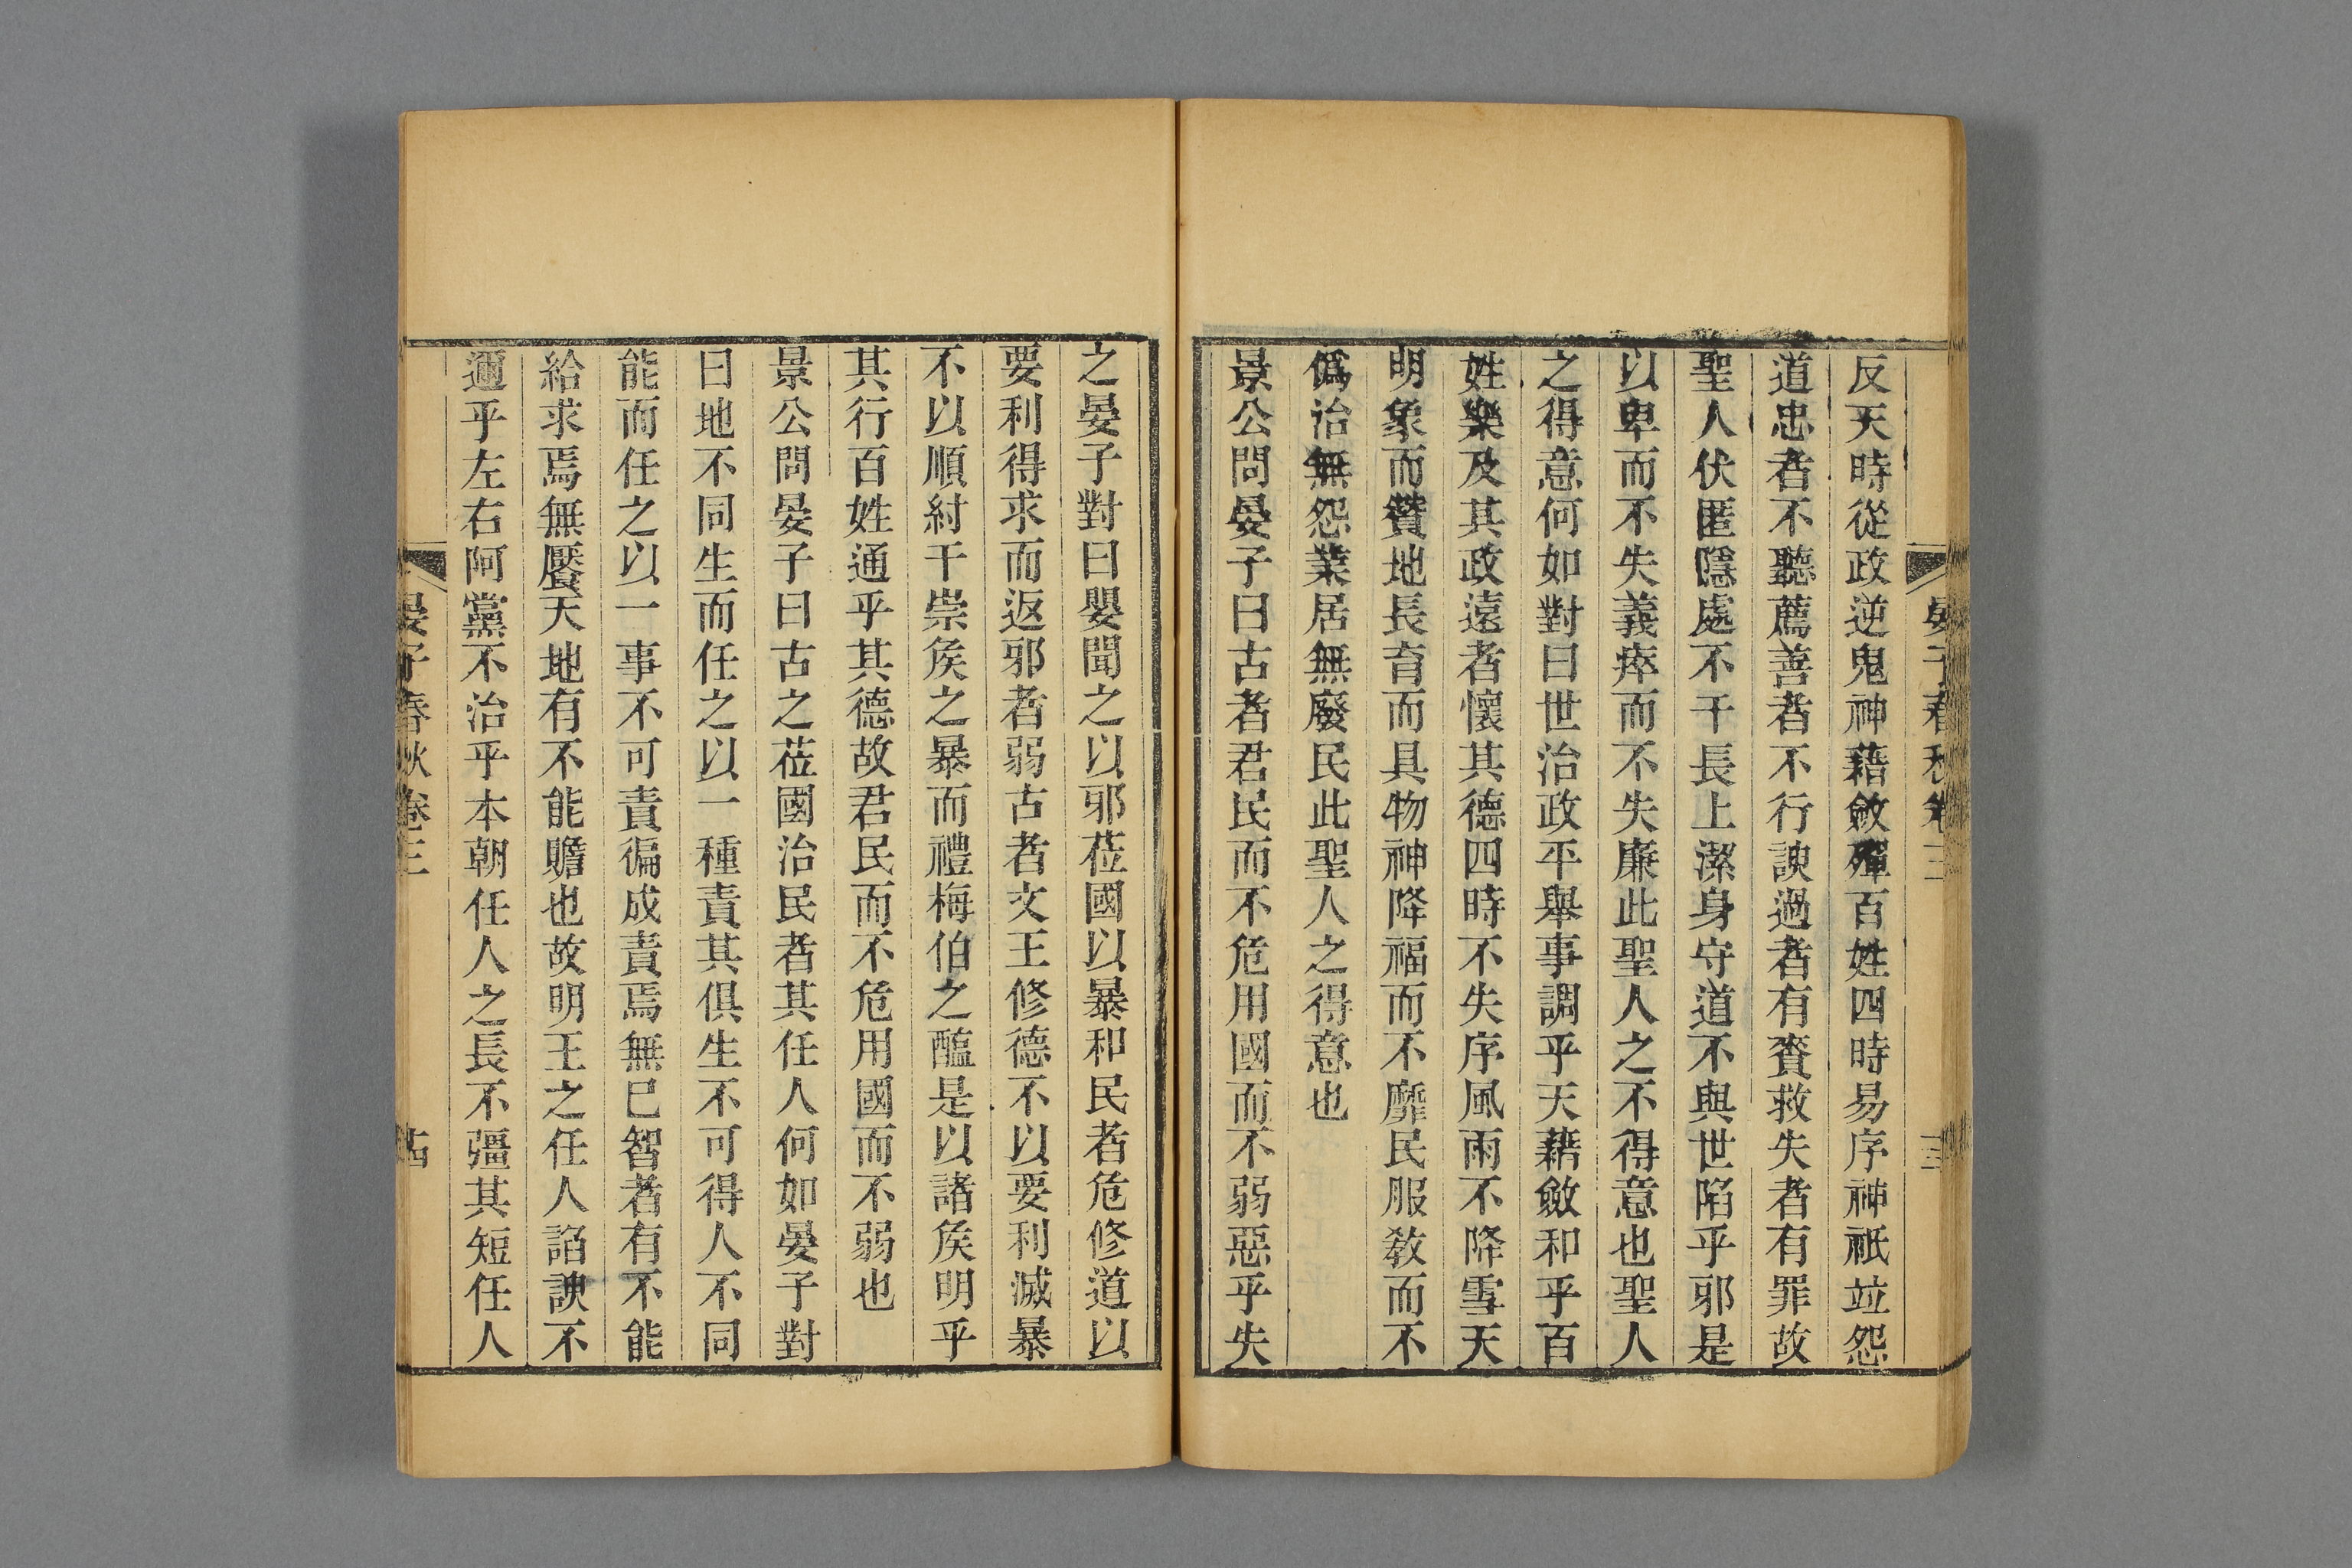 晏子春秋卷三
反天時從政逆鬼神藉斂殫百姓四時易序神祇竝怨
道忠者不聽薦善者不行諛過者有賚救失者有罪故
聖人伏匿隱處不干長上潔身守道不與世陷乎邪是
以卑而不失義瘁而不失廉此聖人之不得意也聖人
之得意何如對曰世治政平舉事調乎天藉斂和乎百
姓樂及其政遠者懷其德四時不失序風雨不降雪天
明象而贊地長育而具物神降福而不靡民服教而不
僞治無怨業居無廢民此聖人之得意也
景公問晏子曰古者君民而不危用國而不弱惡乎失
之晏子對曰嬰聞之以邪莅國以暴和民者危修道以
要利得求而返邪者弱古者文王修德不以要利滅暴
不以順紂干崇矦之暴而禮梅伯之醢是以諸矦明乎
其行百姓通乎其德故君民而不危用國而不弱也
景公問晏子曰古之莅國治民者其任人何如晏子對
曰地不同生而任之以一種責其俱生不可得人不同
能而任之以一事不可責徧成責焉無已智者有不能
給求焉無饜天地有不能贍也故明王之任人諂諛不
邇乎左右阿黨不治乎本朝任人之長不彊其短任人
晏子春秋卷三